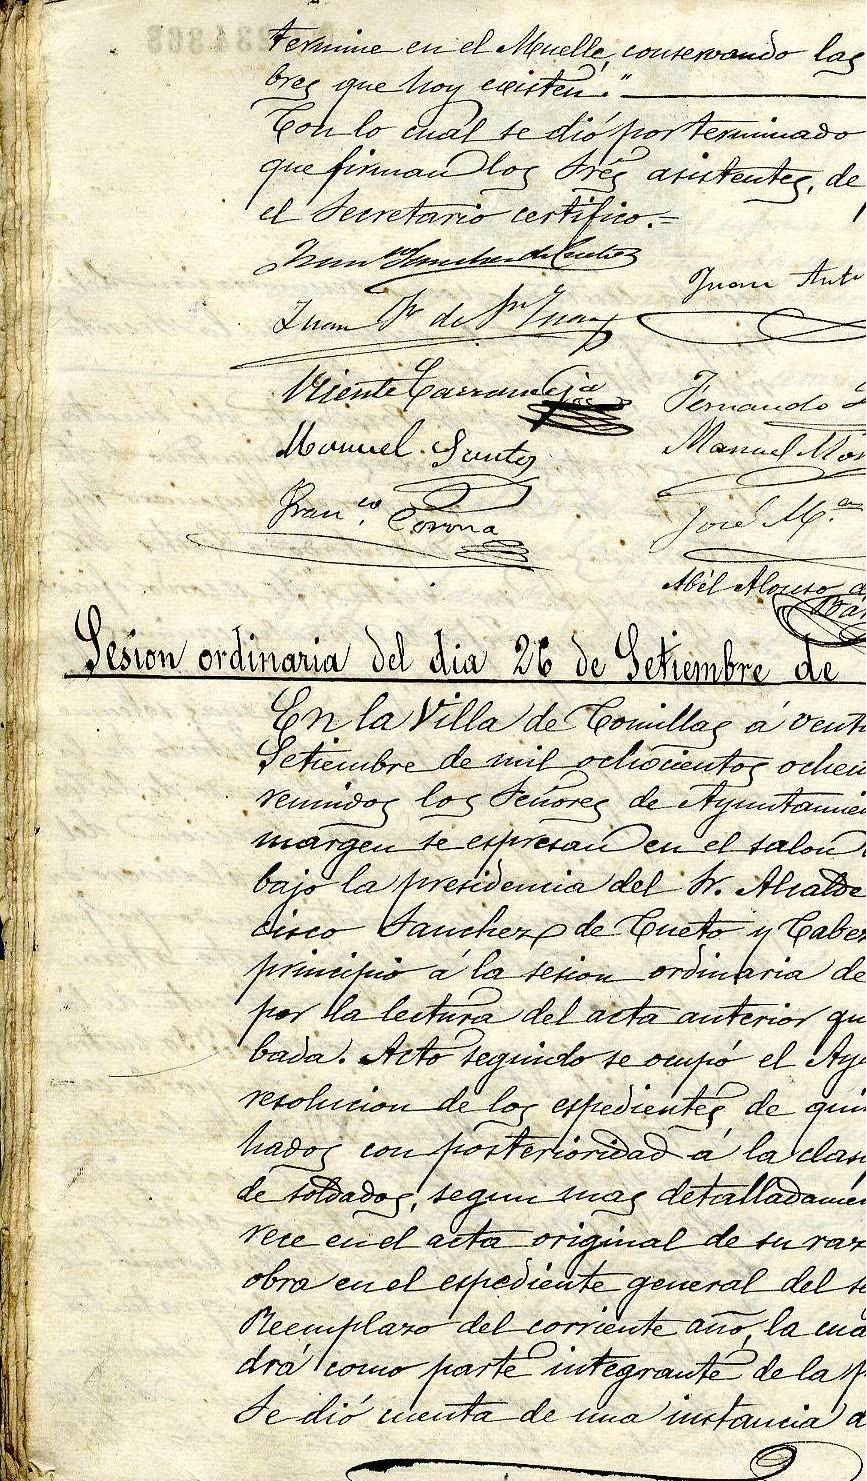 termine en el Muelle, conservando las
bres que hoy existen."
Con lo cual se dió por terminado
que firman los Sres asistentes, de
el Secretario certifico.=
Juan Anto
Juan
Vicente
Fernando
Manuel Santos
Manuel
Franco. Corona
José M.a
Abél Alonso d
Sesion ordinaria del dia 26 de Setiembre de
En la Villa de Comillas á venti
Setiembre de mil ochocientos ochen
reunidos los Señores de Ayuntamie
margen se espresan en el salon
bajo la presidencia del Sr. Alcalde
cisco Sanchez de Cueto y Cabez
principio á la sesion ordinaria de
por la lectura del acta anterior qu
bada. Acto seguido se ocupó el Ay
resolucion de los espedientes de quin
hados con posterioridad á la clas
de soldados, segun mas detalladamen
rece en el acta original de su raz
obra en el espediente general del
Reemplazo del corriente año, la cua
drá como parte integrante de la p
Se dió cuenta de una instancia d